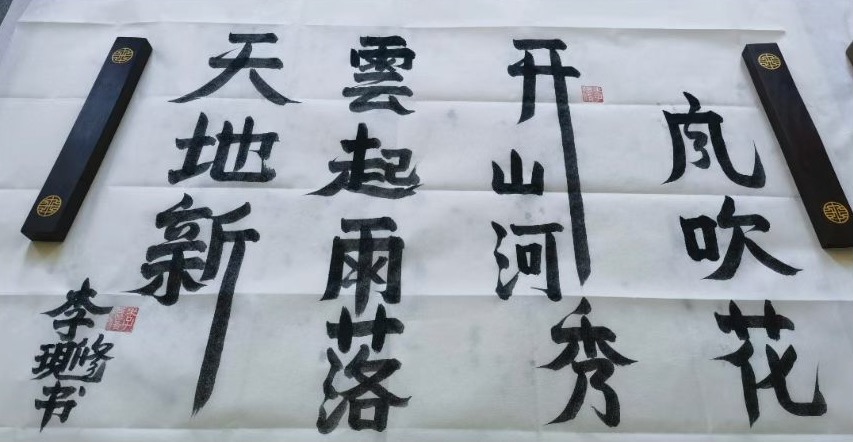 风吹花
开山河秀
雲起雨落
天地新
李修現书